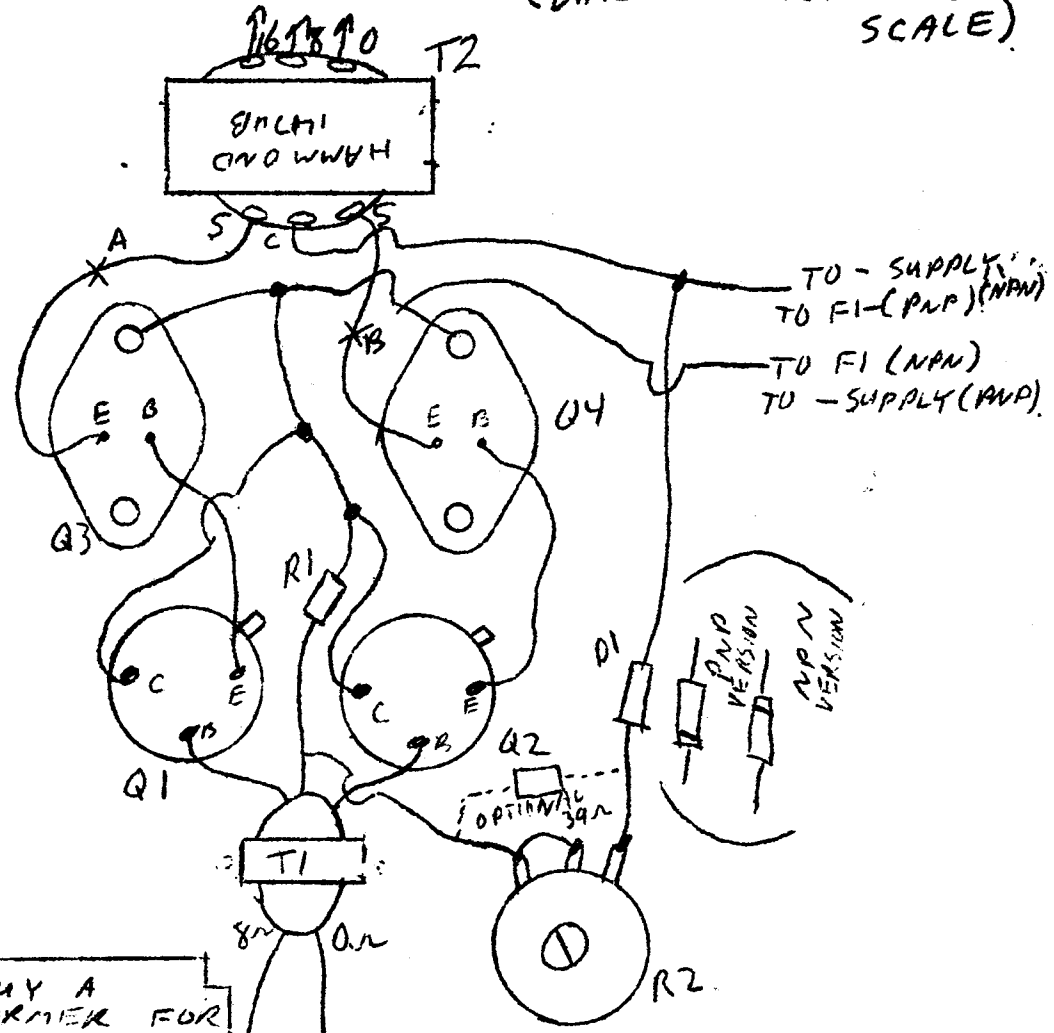 SCALE)
16 8 0
T2
HAMMOND
147UB
S C S
A
B
TO - SUPPLY (NPN)
TO F1-(PNP)
TO F1 (NPN)
TO - SUPPLY (PNP)
E B
Q3
E B
Q4
R1
D1
PNP VERSION
NPN VERSION
C E B
Q1
C E B
Q2
OPTIONAL
39Ω
T1
8Ω 0Ω
R2
A
FOR